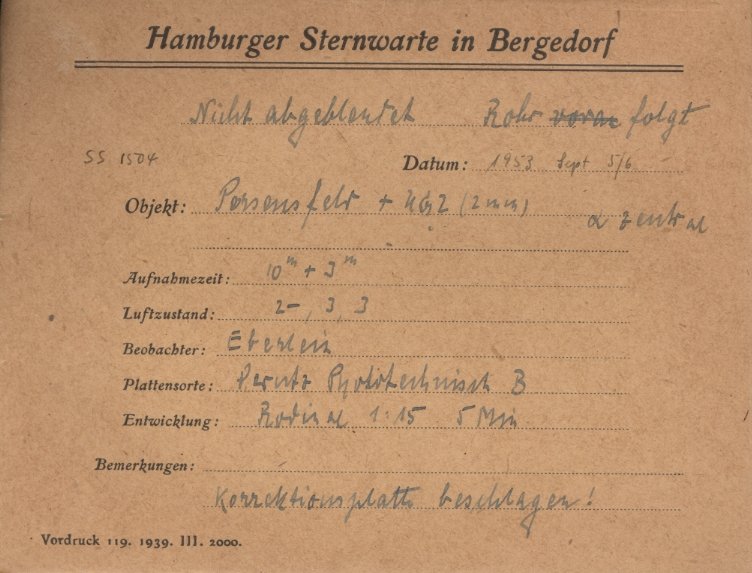 Hamburger Sternwarte in Bergedorf
Nicht abgeblendet Rohr vorne folgt
SS 1504 Datum: 1953 Sept 5/6
Objekt: Perseusfeld + (2 mm) α zentral
Aufnahmezeit: 10ᵐ + 3ᵐ
Luftzustand: 2–, 3, 3
Beobachter: Eberlein
Plattensorte: Perutz Phototechnisch B
Entwicklung: Rodinal 1:15 5 Min
Bemerkungen:
Korrektionsplatte beschlagen!
Vordruck 119. 1939. III. 2000.